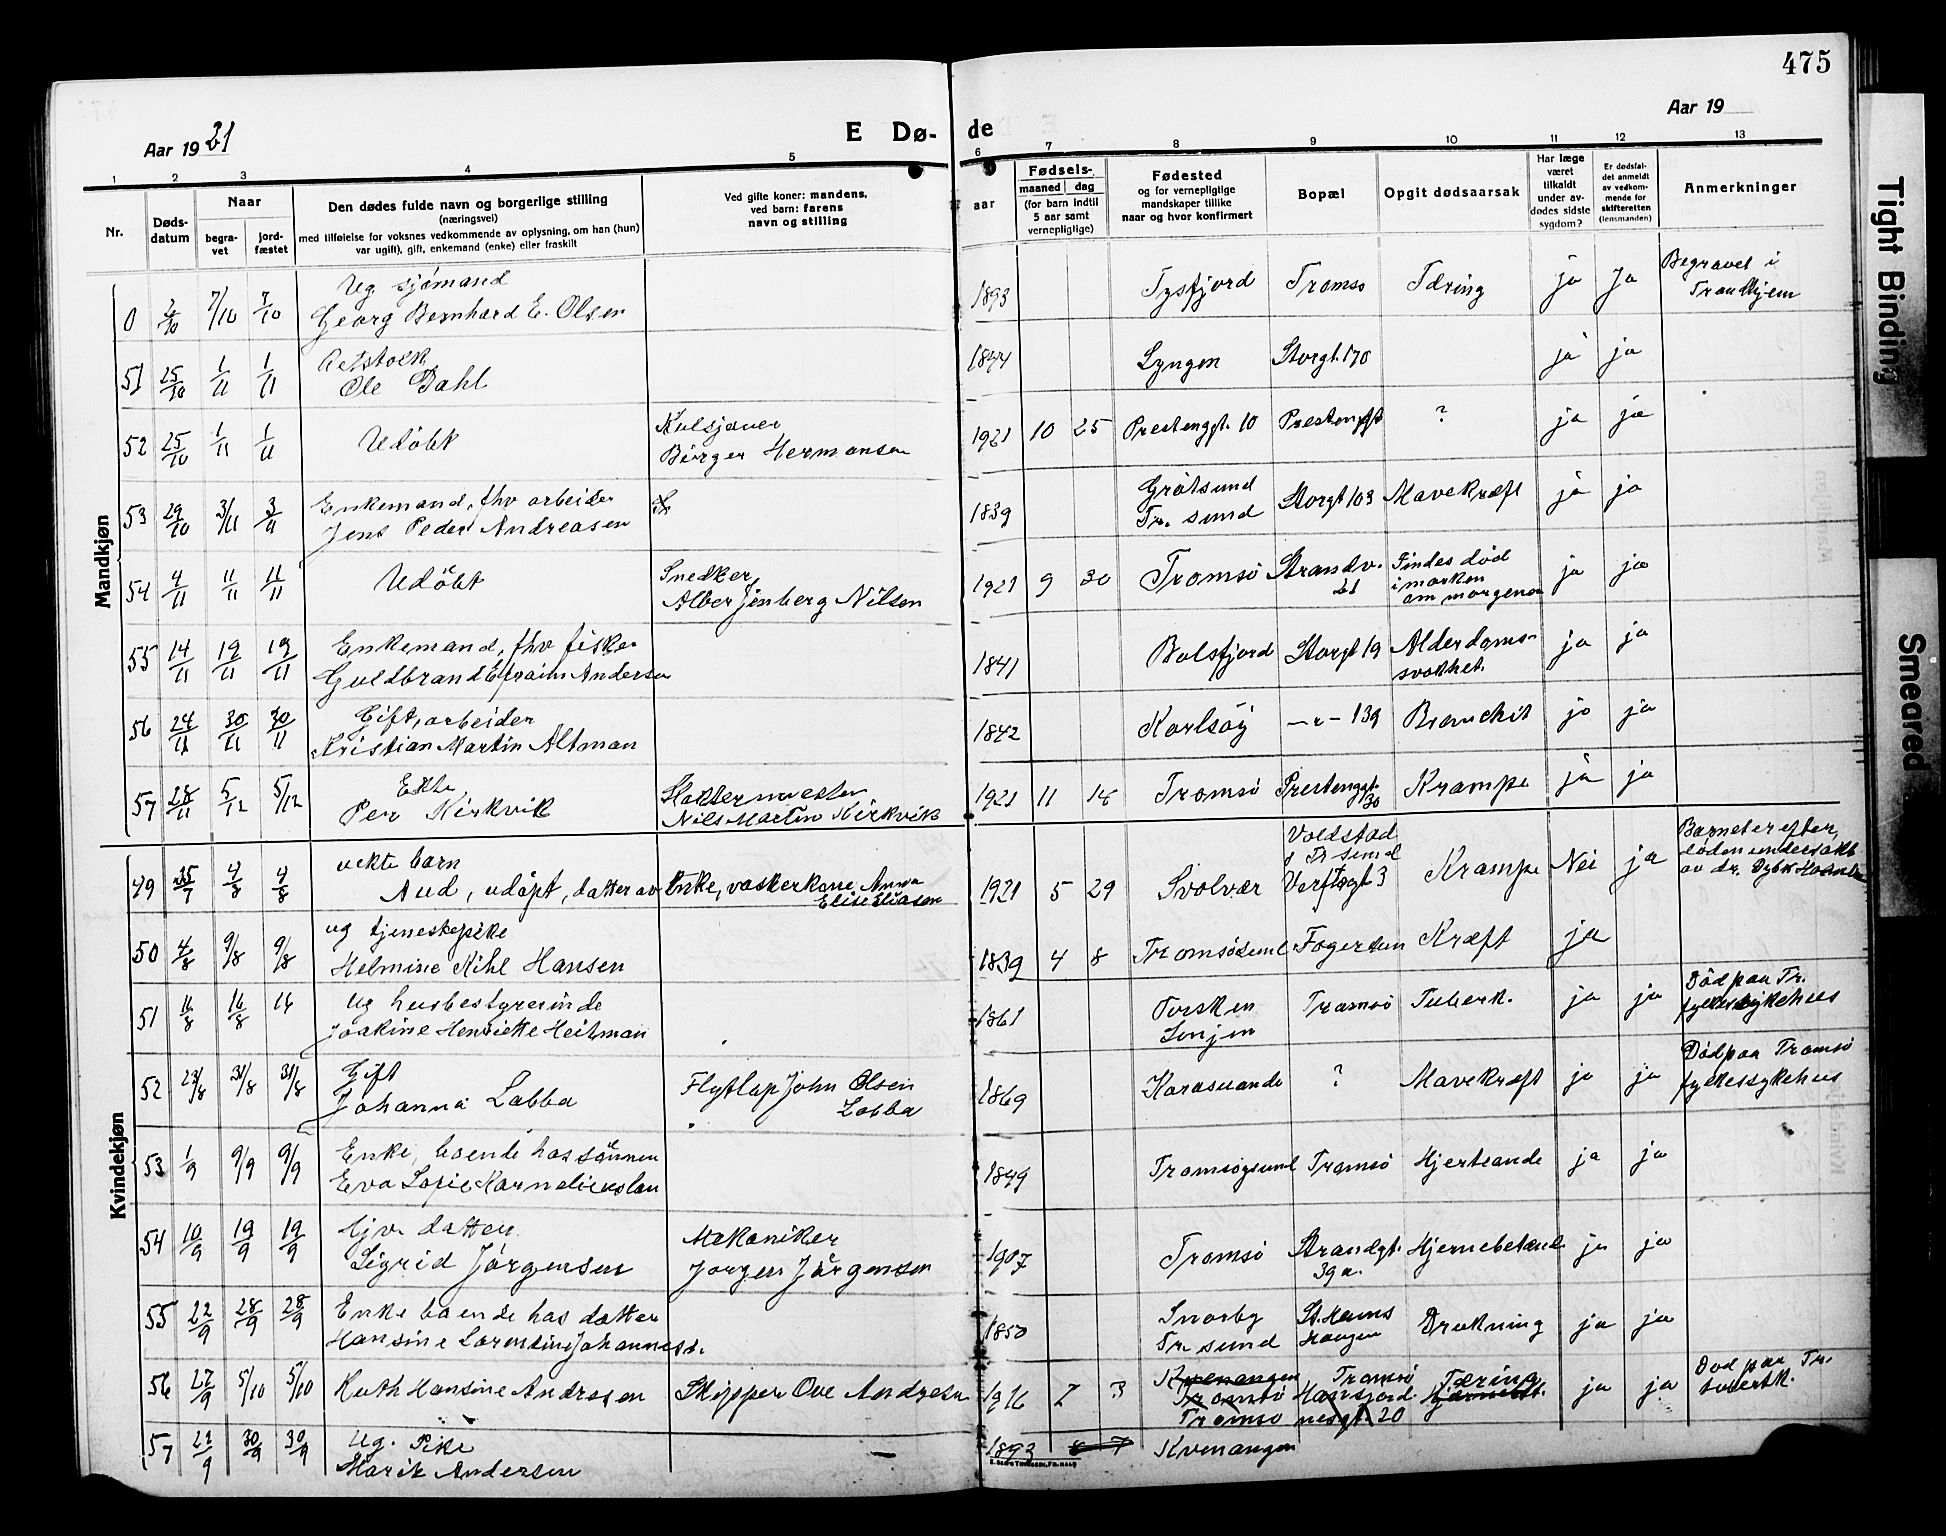 475
Aar 1921
E Dø-
de
Aar 19
1 2 3 4 5 6 7 8 9 10 11 12 13
Nr.
Døds-
datum
Naar
begra-
vet
jord-
fæstet
Den dødes fulde navn og borgerlige stilling
(næringsvei)
med tilføielse for voksnes vedkommende av oplysning, om han (hun)
var ugift), gift, enkemand (enke) eller fraskilt
Ved gifte koner: mandens,
ved barn: farens
navn og stilling
aar
Fødsels-
maaned dag
(for barn indtil
5 aar samt
vernepligtige)
Fødested
og for vernepligtige
mandskaper tillike
naar og hvor konfirmert
Bopæl
Opgit dødsaarsak
Har læge
været
tilkaldt
under av-
dødes sidste
sygdom?
Er dødsfal-
det anmeldt
av vedkom-
mende for
skifteretten
(lensmanden)
Anmerkninger
Mandkjøn
Ug sjømand
0 2/10 7/10 7/10 Georg Bernhard E. Olsen 1893 Tysfjord Tromsø Tæring ja ja Begravet i
Trondhjem
51 25/10 1/11 1/11 Ole Dahl 1844 Lyngen Storgt. 170 ja ja
52 25/10 1/11 1/11 Udøbt Kulsjauer
Birger Hermansen 1921 10 25 Prestenggt. 10 Prestenggt ? ja ja
Enkemand, fhv arbeider
53 29/10 3/11 Jens Peder Andreasen 1839 Gråtsund
Tr. sund Storgt 103 Mavekræft ja ja
54 4/11 11/11 11/11 Udøbt Snedker
Albert Jenberg Nilsen 1921 9 30 Tromsø Strandv.
21 Findes død
i marken
om morgenen ja ja
Enkemand, fhv fisker
55 14/11 19/11 19/11 Guldbrand Efraim Andersen 1841 Balsfjord Storgt 19 Alderdoms-
svakhet ja ja
Gift, arbeider
56 24/11 30/11 30/11 Kristian Martin Altman 1842 Karlsøy —"— 139 Bronchit ja ja
Ekte
57 28/11 5/12 5/12 Per Kirkvik Slaktermester
Nils Martin Kirkvik 1921 11 18 Tromsø Prestenggt.
30 Krampe ja ja
Kvindekjøn
uekte barn
49 4/8 4/8 Aud, udøpt, datter av Enke, vaskerkone Anna
Elise Eliasen 1921 5 29 Svolvær
Tr sund
Verftsgt 3 Krampe Nei ja Barnet er efter
døden undersøkt
av dr.
ug tjenestepike
50 4/8 9/8 9/8 Helmine Kihl Hansen 1839 4 8 Tromsøsund Kræft ja
ug husbestyrerinde
51 16/8 16/8 16 Joakine Henriette Heitman 1861 Torsken
Senjen Tromsø Tuberk. ja ja Død paa Tr.
fylkessykehus
Gift
52 23/8 31/8 31/8 Johanna Labba Flytlap John Olsen
Labba 1869 Karasuando ? Mavekræft ja ja Død paa Tromsø
fylkessykehus
Enke, boende hos sønnen
53 1/9 9/9 9/9 Eva Sofie 1849 Tromsøysund Tromsø Hjerteonde ja ja
Hjv. datter
54 10/9 19/9 19/9 Sigrid Jørgensen Mekaniker
Jørgen Jørgensen 1907 Tromsø Strandgt.
39 a. Hjernebetænd ja ja
Enke boende hos datter
55 22/9 28/9 28/9 Hansine Lorentine Johannes 1850 Snarby
Tr sund St. Hans
Haugen Drukning ja ja
56 27/9 5/10 5/10 Ruth Hansine Andresen Skipper Ove Andresen 1916 7 3 Kvenangen
Tromsø
Tromsø Tromsø
nesgt. 20 Tæring ja ja Død paa Tr.
Ug. Pike
57 22/9 30/9 30/9 Marie Andersen 1893 8 7 Kvenangen
Tight Binding
Smeared